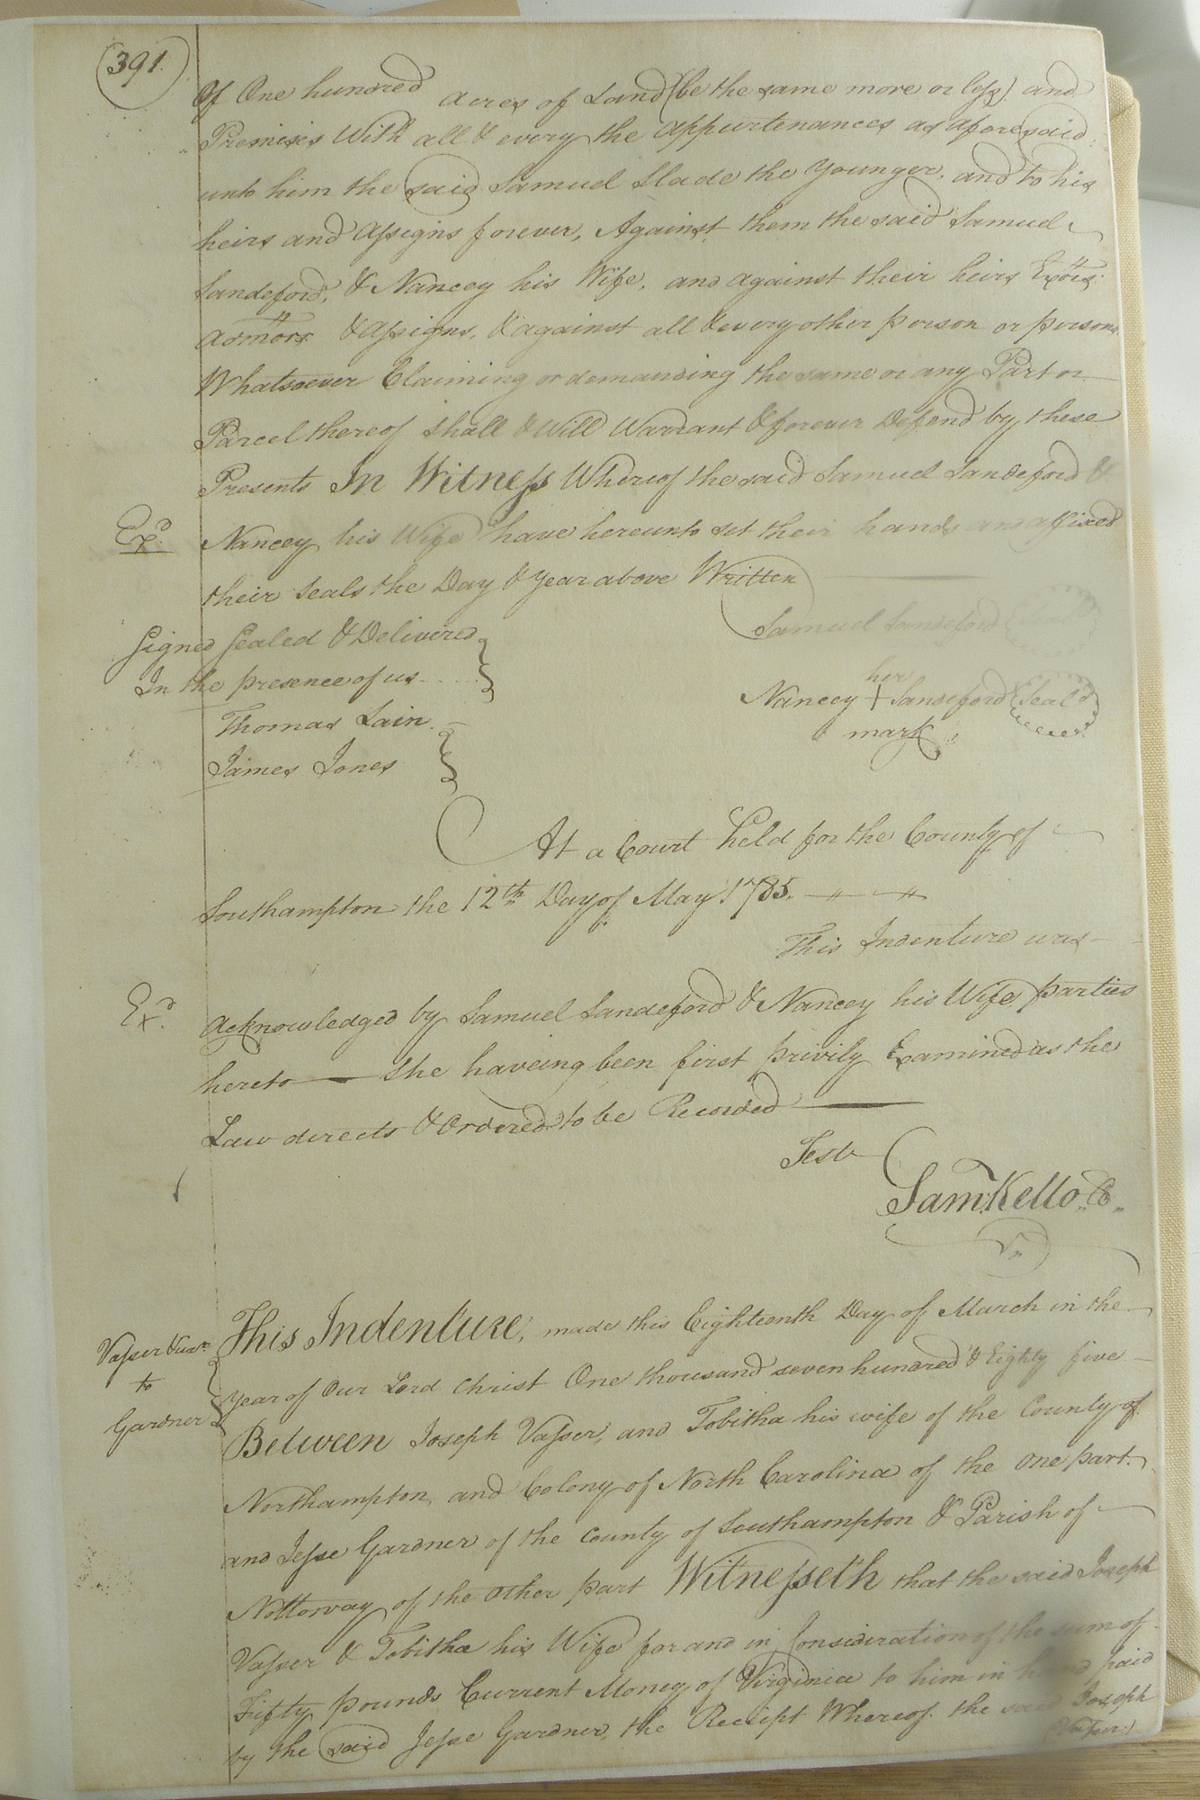 391.
Of One hundred acres of Land (be the same more or less) and
Premises With all & every the appurtenances as aforesaid
unto him the said Samuel Slade the Younger, and to his
heirs and assigns forever, Against them the said Samuel
Sandeford, & Nancey his Wife, and against their heirs Exors:
admors & assigns, & against all & every other person or persons
Whatsoever Claiming or demanding the same or any Part or
Parcel thereof shall & Will Warrant & forever Defend by these
Presents In Witness Whereof the said Samuel Sandeford &
Exd. Nancey his Wife have hereunto set their hands and affixed
their seals the Day & year above Written
Signed Sealed & Delivered
In the presence of us
Thomas Lain
James Jones
Samuel Sandeford
her
Nancey + Sandeford (Seal)
mark
At a Court held for the County of
Southampton the 12th Day of May 1785.
This Indenture was
Exd. acknowledged by Samuel Sandeford & Nancey his Wife parties
hereto — she haveing been first privily Examined as the
Law directs & Ordered to be Recorded —
Test
Saml. Kello C
Vasser & uxr
to
Gardner
This Indenture, made this Eighteenth Day of March in the
year of Our Lord Christ One thousand seven hundred & Eighty five
Between Joseph Vasser, and Tobitha his wife of the County of
Northampton, and Colony of North Carolina of the one part
and Jesse Gardner of the County of Southampton & Parish of
Nottoway of the other part Witnesseth that the said Joseph
Vasser & Tobitha his Wife for and in Consideration of the sum of
Fifty pounds Current Money of Virginia to him in hand paid
by the said Jesse Gardner, the Receipt Whereof the said Joseph
Vasser